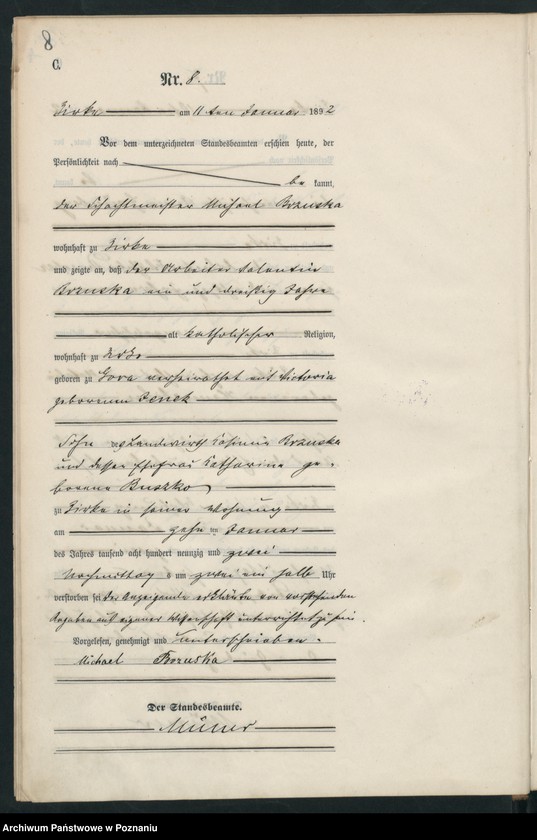 8
C.
Nr. 8.
Zirke am 11ten Januar 1892
Vor dem unterzeichneten Standesbeamten erschien heute, der
Persönlichkeit nach
be kannt,
der Schachtmeister Michael Brzuska
wohnhaft zu Zirke
und zeigte an, daß der Arbeiter Valentin
Brzuska ein und dreißig Jahre
alt katholischer Religion,
wohnhaft zu Zirke
geboren zu Gora verheirathet mit Victoria
geborenen Jenek
Sohn des Landwirth Casimir Brzuska
und dessen Ehefrau Katharina ge-
borene Buszko
zu Zirke in seiner Wohnung
am zehn ten Januar
des Jahres tausend acht hundert neunzig und zwei
Nachmittag s um zwei ein halb Uhr
verstorben sei der Anzeigende erklärte von vorstehenden
Angaben aus eigener Wissenschaft unterrichtet zu sein.
Vorgelesen, genehmigt und unterschrieben.
Michael Brzuska
Der Standesbeamte.
Archiwum Państwowe w Poznaniu